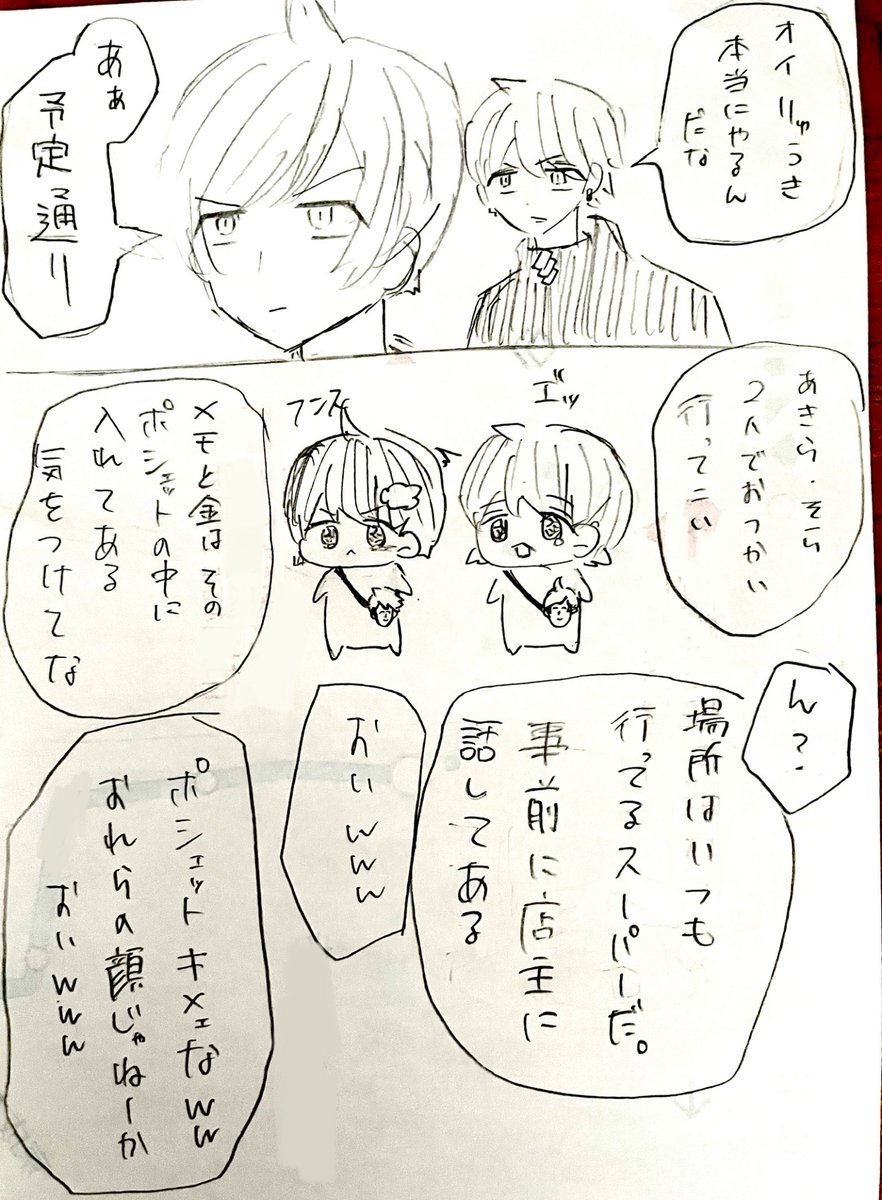 オイりゅうき
本当にやるん
だな
あぁ
予定通り
あきら・そら
2人でおつかい
行ってこい
エ゛ッ
フンス
メモと金はその
ポシェットの中に
入れてある
気をつけてな
ん?
場所はいつも
行ってるスーパーだ。
事前に店主に
話してある
おいwww
ポシェットキメェなww
おれらの顔じゃねーか
おいwww